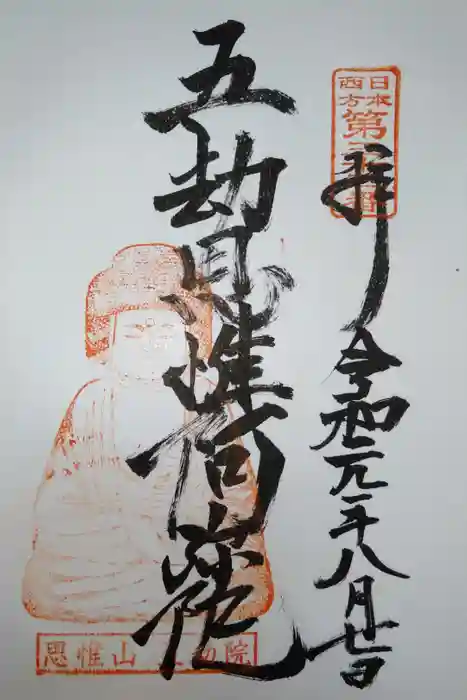 日本
西方
第 番
拝 令和元年八月廿日
五劫思惟
思惟山 五劫院